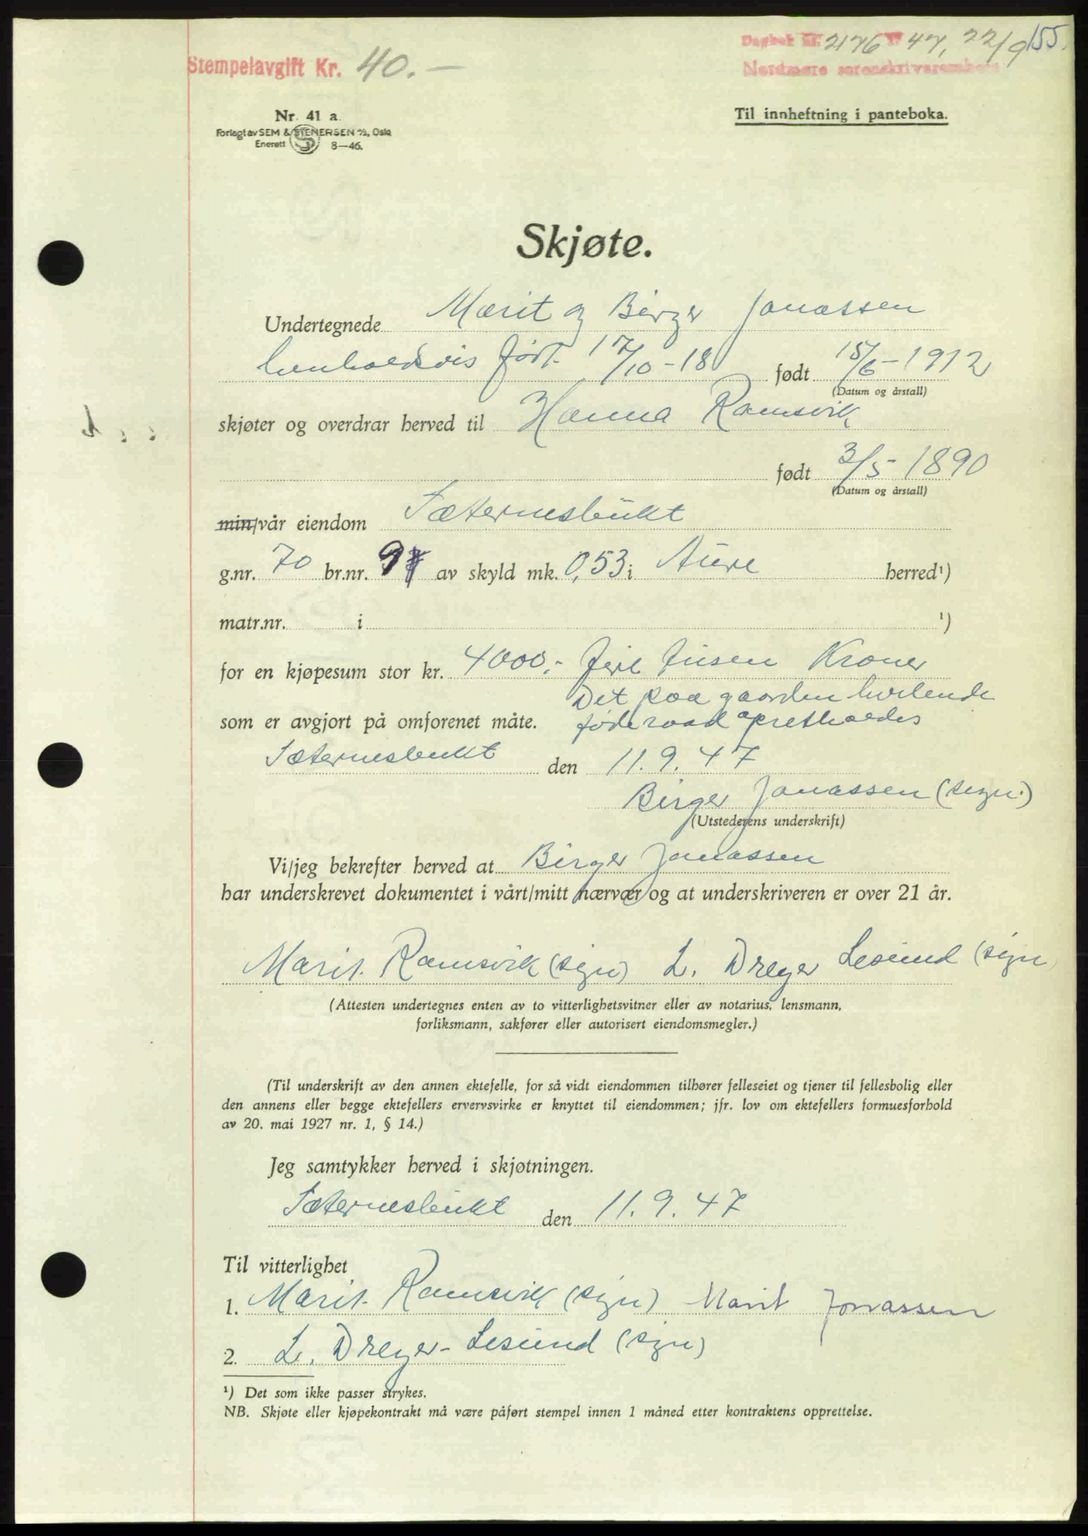 Stempelavgift Kr. 40.-
Dagbok nr. 2176 47, 22/9 155.
Nordmøre sorenskriverembete
Nr. 41 a
Forlagt av SEM & STENERSEN A/S, Oslo
Enerett 8—46.
Til innheftning i panteboka.
Skjøte.
Undertegnede Marit og Birger Jonassen
henholdsvis født 17/10-18 født 15/6-1912
(Datum og årstall)
skjøter og overdrar herved til Hanna Ramsvik
født 3/5-1890
(Datum og årstall)
min/vår eiendom Sæternesbukt
g.nr. 70 br.nr. 9 av skyld mk. 0,53 i Aure herred¹)
matr.nr. i ¹)
for en kjøpesum stor kr. 4000,- fire tusen Kroner
Det paa gaarden hvilende
som er avgjort på omforenet måte. føderaad opretholdes
Sæternesbukt den 11.9.47
Birger Jonassen (sign.)
(Utstederens underskrift)
Vi/jeg bekrefter herved at Birger Jonassen
har underskrevet dokumentet i vårt/mitt nærvær og at underskriveren er over 21 år.
Marit Ramsvik (sign) L. Dreyer Lesund (sign)
(Attesten undertegnes enten av to vitterlighetsvitner eller av notarius, lensmann,
forliksmann, sakfører eller autorisert eiendomsmegler.)
(Til underskrift av den annen ektefelle, for så vidt eiendommen tilhører felleseiet og tjener til fellesbolig eller
den annens eller begge ektefellers ervervsvirke er knyttet til eiendommen; jfr. lov om ektefellers formuesforhold
av 20. mai 1927 nr. 1, § 14.)
Jeg samtykker herved i skjøtningen.
Sæternesbukt den 11.9.47
Til vitterlighet
1. Marit Ramsvik (sign) Marit Jonassen
2. L. Dreyer-Lesund (sign)
¹) Det som ikke passer strykes.
NB. Skjøte eller kjøpekontrakt må være påført stempel innen 1 måned etter kontraktens opprettelse.